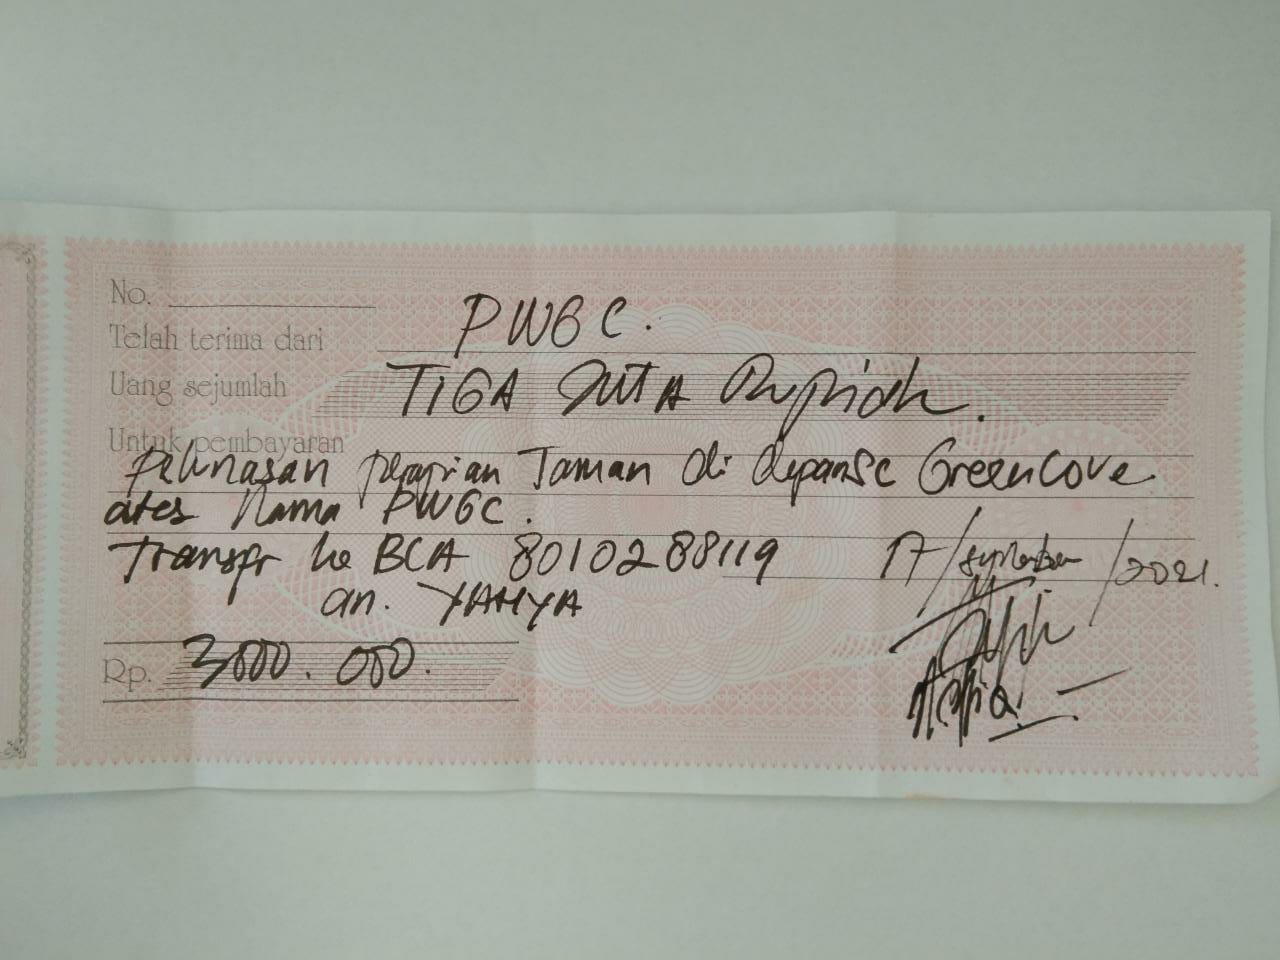 No.
Telah terima dari PWGC.
Uang sejumlah TIGA JUTA Rupiah.
Untuk pembayaran
pelunasan Taman di Greencove
ates Nama PWGC.
Transfr ke BCA 8010288119 17/september/2021.
an. YAHYA
Rp. 3000.000.